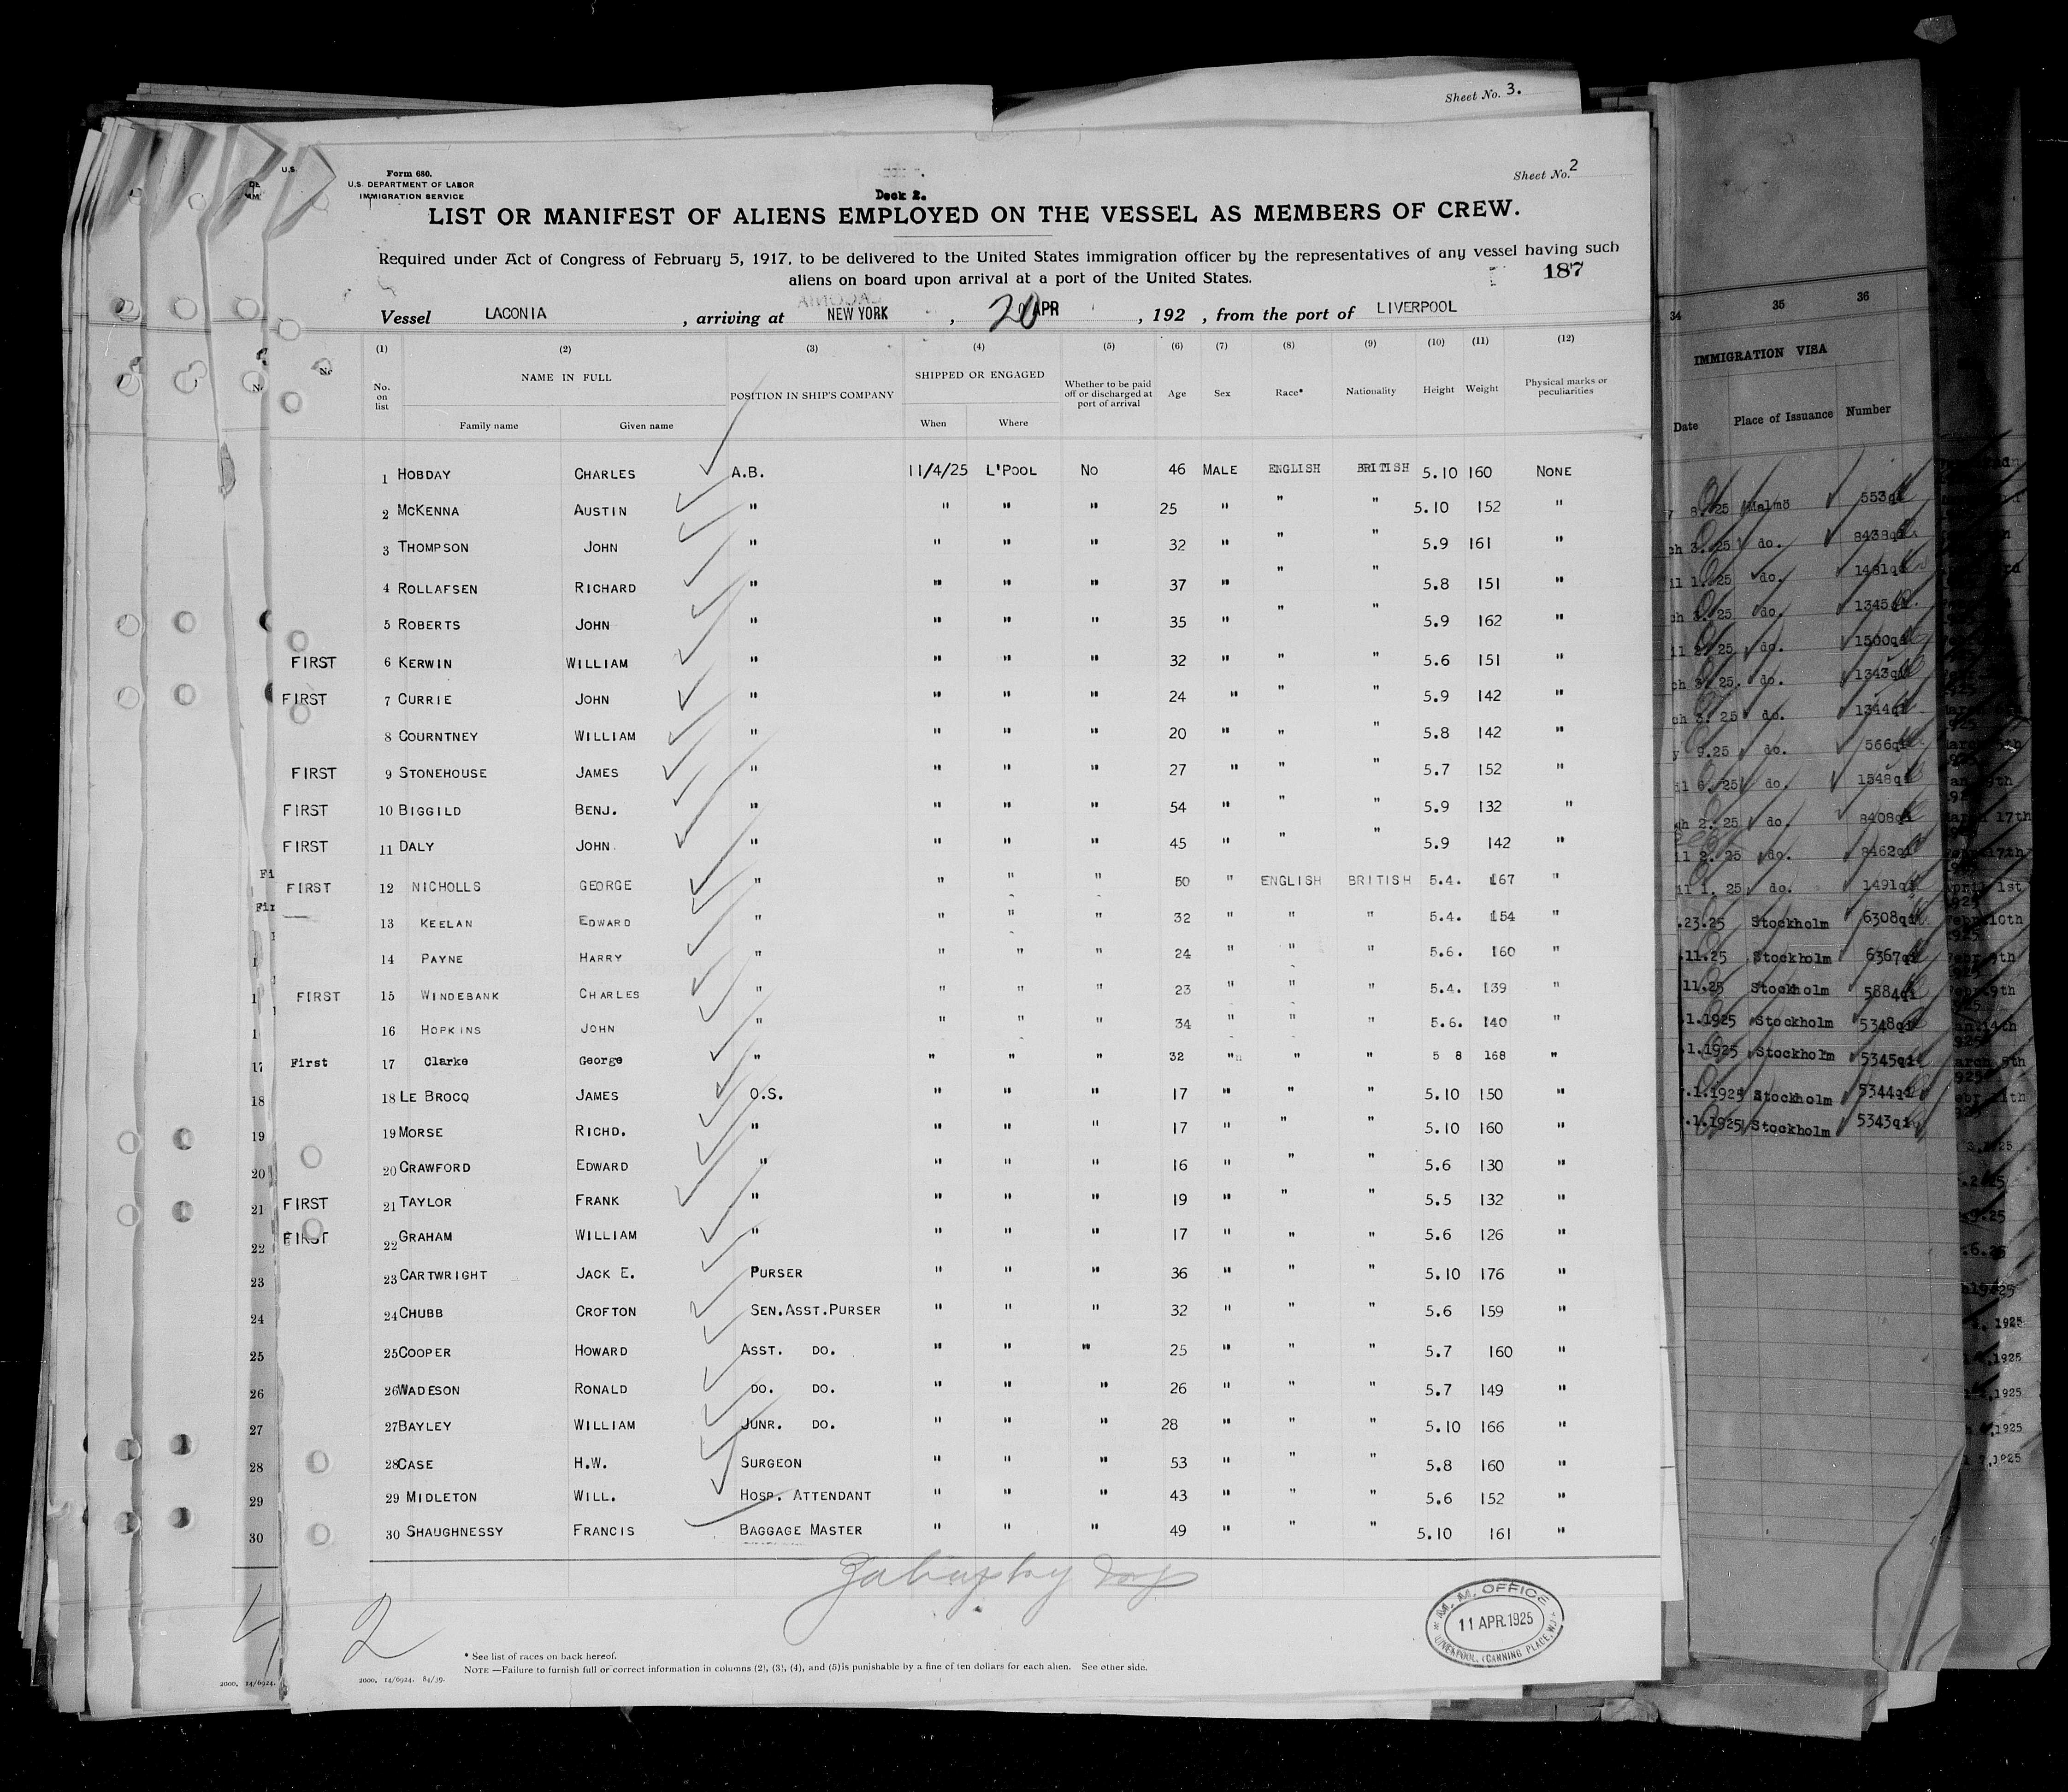 Sheet No. 3.
U.S.
Form 680.
U.S. DEPARTMENT OF LABOR
IMMIGRATION SERVICE
Sheet No. 2
Deck 2.
LIST OR MANIFEST OF ALIENS EMPLOYED ON THE VESSEL AS MEMBERS OF CREW.
Required under Act of Congress of February 5, 1917, to be delivered to the United States immigration officer by the representatives of any vessel having such
aliens on board upon arrival at a port of the United States.
187
Vessel LACONIA , arriving at NEW YORK , 20 APR , 192 , from the port of LIVERPOOL
(1) (2) (3) (4) (5) (6) (7) (8) (9) (10) (11) (12)
No. on list NAME IN FULL POSITION IN SHIP'S COMPANY SHIPPED OR ENGAGED Whether to be paid off or discharged at port of arrival Age Sex Race* Nationality Height Weight Physical marks or peculiarities
Family name Given name When Where
1 HOBDAY CHARLES A.B. 11/4/25 L'POOL NO 46 MALE ENGLISH BRITISH 5.10 160 NONE
2 MCKENNA AUSTIN " " " " 25 " " " 5.10 152 "
3 THOMPSON JOHN " " " " 32 " " " 5.9 161 "
4 ROLLAFSEN RICHARD " " " " 37 " " " 5.8 151 "
5 ROBERTS JOHN " " " " 35 " " " 5.9 162 "
FIRST 6 KERWIN WILLIAM " " " " 32 " " " 5.6 151 "
FIRST 7 CURRIE JOHN " " " " 24 " " " 5.9 142 "
8 COURNTNEY WILLIAM " " " " 20 " " " 5.8 142 "
FIRST 9 STONEHOUSE JAMES " " " " 27 " " " 5.7 152 "
FIRST 10 BIGGILD BENJ. " " " " 54 " " " 5.9 132 "
FIRST 11 DALY JOHN " " " " 45 " " " 5.9 142 "
FIRST 12 NICHOLLS GEORGE " " " " 50 " ENGLISH BRITISH 5.4. 167 "
13 KEELAN EDWARD " " " " 32 " " " 5.4. 154 "
14 PAYNE HARRY " " " " 24 " " " 5.6. 160 "
FIRST 15 WINDEBANK CHARLES " " " " 23 " " " 5.4. 139 "
16 HOPKINS JOHN " " " " 34 " " " 5.6. 140 "
First 17 Clarke George " " " " 32 " " " 5 8 168 "
18 LE BROCQ JAMES O.S. " " " 17 " " " 5.10 150 "
19 MORSE RICHD. " " " " 17 " " " 5.10 160 "
20 CRAWFORD EDWARD " " " " 16 " " " 5.6 130 "
FIRST 21 TAYLOR FRANK " " " " 19 " " " 5.5 132 "
FIRST 22 GRAHAM WILLIAM " " " " 17 " " " 5.6 126 "
23 CARTWRIGHT JACK E. PURSER " " " 36 " " " 5.10 176 "
24 CHUBB CROFTON SEN.ASST.PURSER " " " 32 " " " 5.6 159 "
25 COOPER HOWARD ASST. DO. " " " 25 " " " 5.7 160 "
26 WADESON RONALD DO. DO. " " " 26 " " " 5.7 149 "
27 BAYLEY WILLIAM JUNR. DO. " " " 28 " " " 5.10 166 "
28 CASE H.W. SURGEON " " " 53 " " " 5.8 160 "
29 MIDLETON WILL. HOSP. ATTENDANT " " " 43 " " " 5.6 152 "
30 SHAUGHNESSY FRANCIS BAGGAGE MASTER " " " 49 " " " 5.10 161 "
2
M.M. OFFICE
11 APR.1925
LIVERPOOL, (CANNING PLACE, W.)
* See list of races on back hereof.
NOTE —Failure to furnish full or correct information in columns (2), (3), (4), and (5) is punishable by a fine of ten dollars for each alien. See other side.
2000, 14/6924. 84/39.
2000, 14/6924.
18
19
20
21
22
23
24
25
26
27
28
29
30
34 35 36
IMMIGRATION VISA
Date Place of Issuance Number
8.25 Malmö 553qi
do. 8438qi
do. 1481qi
do. 1345qi
do. 1500qi
do. 1343qi
do. 1344qi
9.25 do. 566qi
do. 1548qi
do. 8408qi
do. 8462qi
do. 1491qi
.23.25 Stockholm 6308qi
.11.25 Stockholm 6367qi
11.25 Stockholm 5884qi
.1.1925 Stockholm 5348qi
.1.1925 Stockholm 5345qi
.1.1925 Stockholm 5344qi
.1.1925 Stockholm 5343qi